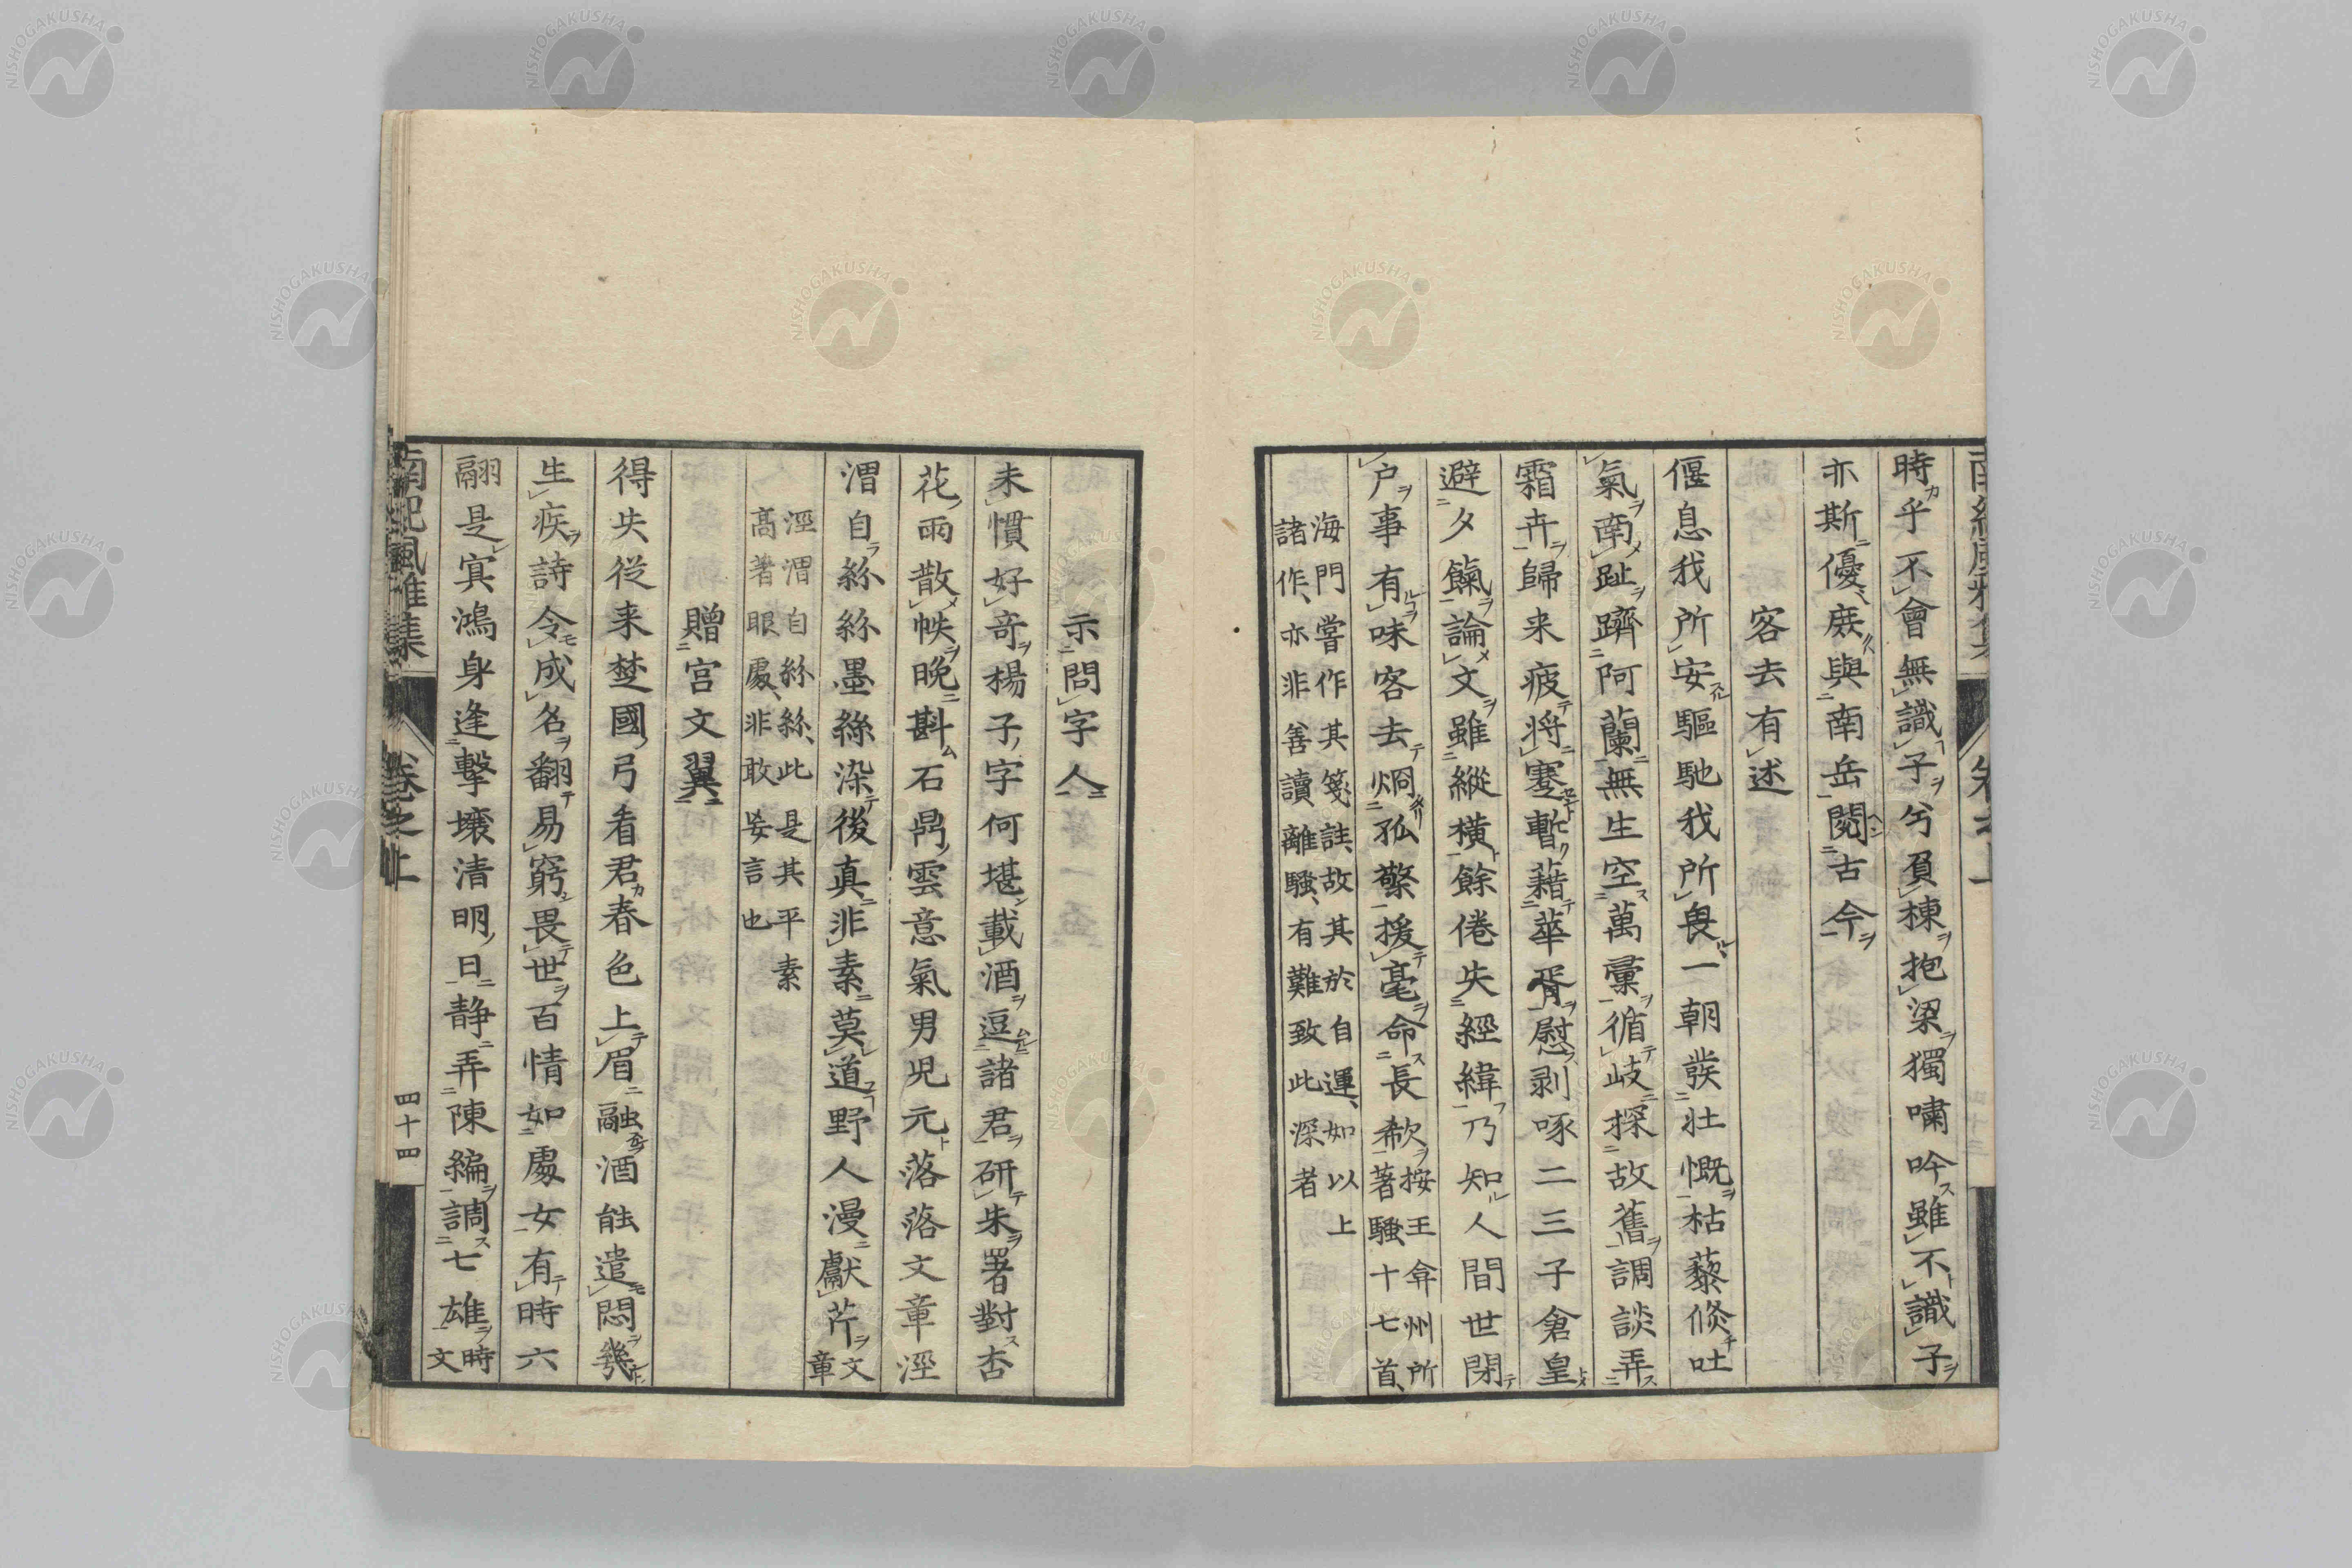 時乎不會無識子兮負棟抱梁獨嘯吟雖不識子
亦斯優蔟與南岳閱古今
客去有述
偃息我所安驅馳我所畏一朝發壯慨枯藜倐吐
氣南趾躋阿蘭無生空萬彙循岐探故舊調談弄
霜卉歸来疲将蹇暫藉華胥慰剥啄二三子倉皇
避夕餼論文雖縱橫餘倦失經緯乃知人間世閉
户事有味客去烱孤檠援毫命長欷
按王弇州所
著騷十七首、
海門嘗作其箋註、故其於自運、如以上
諸作、亦非善讀離騷、有難致此深者
示問字人
未慣好竒楊子字何堪載酒逗諸君研朱署對杏
花雨散帙晚斟石鼎雲意氣男児元落落文章涇
渭自絲絲墨絲染後真非素莫道野人漫獻芹
文
章
涇渭自絲絲、此是其平素
髙著眼處、非敢妄言也
贈宫文翼
得失従来楚國弓看君春色上眉融酒能遣悶幾
生疾詩令成名翻易窮畏世百情如處女有時六
翮是寘鴻身逢撃壌清明日静弄陳編調七雄
時
文
南紀風雅集
卷之上
四十四